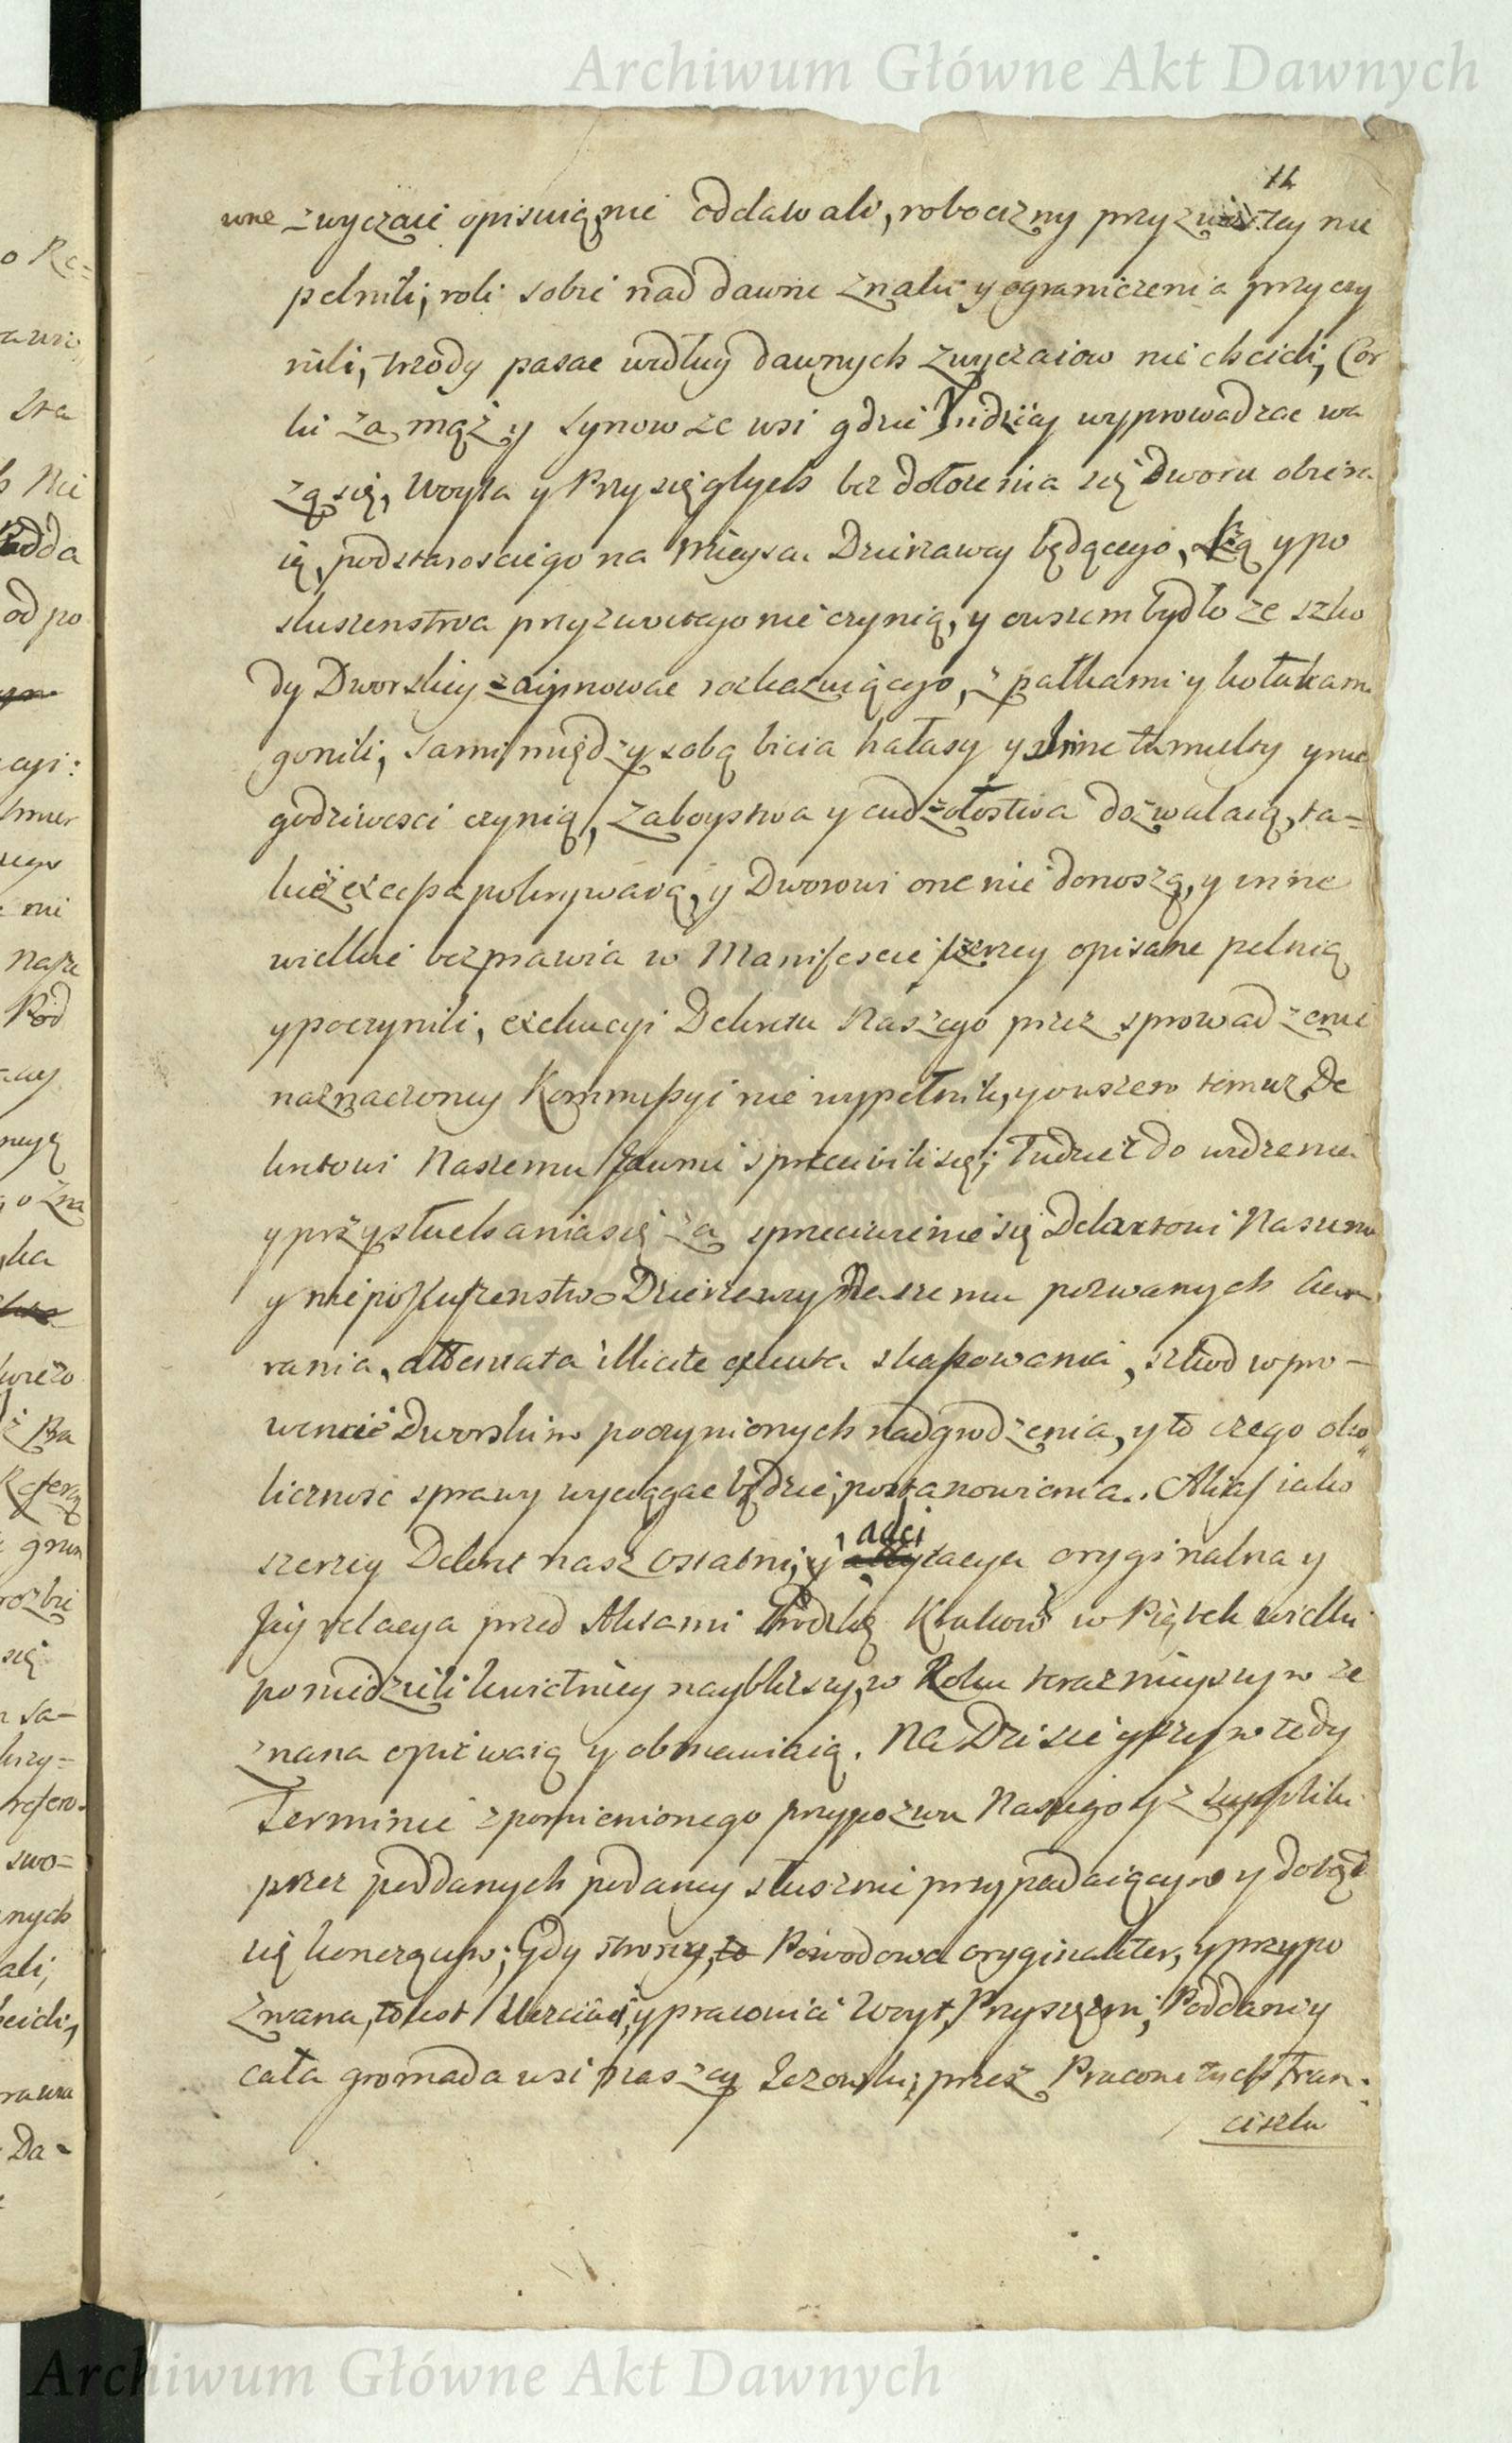 Archiwum Główne Akt Dawnych
14
wne zwyczaie opisuią, nie oddawali, robocizny przyzwoitey nie
pełnili, roli sobie nad dawne znaki y ograniczenia przyczy
nili, trzody pasać według dawnych zwyczaiow nie chcieli, Cor
ki za mąż y synow ze wsi gdzie indziey wyprowadzać wa
żą się, Woyta y Przysięgłych bez dołożenia się Dworu obiera
ią, podstarosciego na mieyscu Dzierzawcy będącego, lżą y po
słuszenstwa przyzwoitego nie czynią, y owszem bydło ze szko
dy Dworskiey zaymować rozkazuiącego, z pałkami y kołkami
gonili, sami między sobą bicia hałasy y inne tumulty y nie
godziwosci czynią, zaboystwa y cudzołostwa dozwalaią, ta=
kież excessa pokrywaią, y Dworowi one nie donoszą, y inne
wielkie bezprawia w Manifescie szerzey opisane pełnią
y poczynili, exekucyi Dekretu Naszego przez sprowadzenie
naznaczoney Kommissyi nie wypełnili, y owszem temuż De
kretowi Naszemu Jawnie sprzeciwili się; Tudzież do widzenia
y przysłuchania się za sprzeciwienie się Dekretowi Naszemu
y nieposłuszenstwo Dzierzawcy Naszemu pozwanych ka
rania, attentata illicite exkuta skassowania, szkod w pro-
wencie Dworskim poczynionych nadgrodzenia, y to czego oko
liczność sprawy wyciągać będzie, postanowienia. Akis iako
szerzey Dekret nasz ostatni, y adcytacya oryginalna y
Jey relacya przed Aktami Grodzkę Krakow w Piątek wielki
po niedzieli kwietniey naybliższy, w Roku teraznieyszym ze
znana opiewaią y obmawiaią. Na Dzisieyszym tedy
Terminie z pomienionego przypozwu Naszego y z Suppliki
przez poddanych podaney słusznie przypadaiącym y dotąd
się konczącym; Gdy strony, Powodowa oryginaliter, y przypo
zwana, to iest Uczciwi, y pracowici Woyt, Przysiężni, Poddani y
cała gromada wsi naszey Jezowsk; przez Pracowitych Fran:
ciszka
Archiwum Główne Akt Dawnych